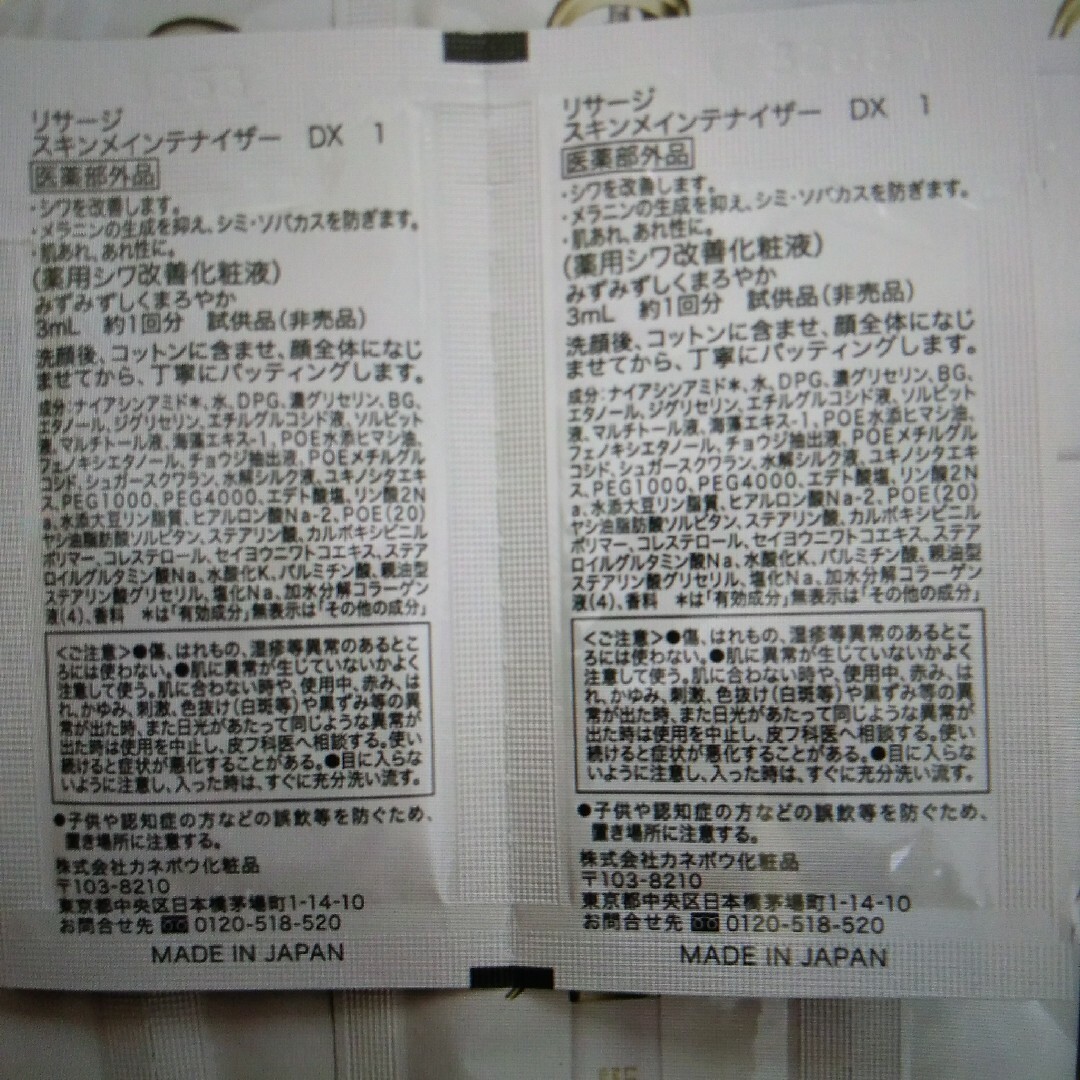 リサージ
スキンメインテナイザー DX 1
医薬部外品
・シワを改善します。
・メラニンの生成を抑え、シミ・ソバカスを防ぎます。
・肌あれ、あれ性に。
(薬用シワ改善化粧液)
みずみずしくまろやか
3mL 約1回分 試供品(非売品)
洗顔後、コットンに含ませ、顔全体になじ
ませてから、丁寧にパッティングします。
成分:ナイアシンアミド*、水、DPG、濃グリセリン、BG、
エタノール、ジグリセリン、エチルグルコシド液、ソルビット
液、マルチトール液、海藻エキス-1、POE水添ヒマシ油、
フェノキシエタノール、チョウジ抽出液、POEメチルグル
コシド、シュガースクワラン、水解シルク液、ユキノシタエキ
ス、PEG1000、PEG4000、エデト酸塩、リン酸2N
a、水添大豆リン脂質、ヒアルロン酸Na-2、POE(20)
ヤシ油脂肪酸ソルビタン、ステアリン酸、カルボキシビニル
ポリマー、コレステロール、セイヨウニワトコエキス、ステア
ロイルグルタミン酸Na、水酸化K、パルミチン酸、親油型
ステアリン酸グリセリル、塩化Na、加水分解コラーゲン
液(4)、香料 *は「有効成分」無表示は「その他の成分」
<ご注意>●傷、はれもの、湿疹等異常のあるとこ
ろには使わない。●肌に異常が生じていないかよく
注意して使う。肌に合わない時や、使用中、赤み、は
れ、かゆみ、刺激、色抜け(白斑等)や黒ずみ等の異
常が出た時、また日光があたって同じような異常が
出た時は使用を中止し、皮フ科医へ相談する。使い
続けると症状が悪化することがある。●目に入らな
いように注意し、入った時は、すぐに充分洗い流す。
●子供や認知症の方などの誤飲等を防ぐため、
置き場所に注意する。
株式会社カネボウ化粧品
〒103-8210
東京都中央区日本橋茅場町1-14-10
お問合せ先 0120-518-520
MADE IN JAPAN
リサージ
スキンメインテナイザー DX 1
医薬部外品
・シワを改善します。
・メラニンの生成を抑え、シミ・ソバカスを防ぎます。
・肌あれ、あれ性に。
(薬用シワ改善化粧液)
みずみずしくまろやか
3mL 約1回分 試供品(非売品)
洗顔後、コットンに含ませ、顔全体になじ
ませてから、丁寧にパッティングします。
成分:ナイアシンアミド*、水、DPG、濃グリセリン、BG、
エタノール、ジグリセリン、エチルグルコシド液、ソルビット
液、マルチトール液、海藻エキス-1、POE水添ヒマシ油、
フェノキシエタノール、チョウジ抽出液、POEメチルグル
コシド、シュガースクワラン、水解シルク液、ユキノシタエキ
ス、PEG1000、PEG4000、エデト酸塩、リン酸2N
a、水添大豆リン脂質、ヒアルロン酸Na-2、POE(20)
ヤシ油脂肪酸ソルビタン、ステアリン酸、カルボキシビニル
ポリマー、コレステロール、セイヨウニワトコエキス、ステア
ロイルグルタミン酸Na、水酸化K、パルミチン酸、親油型
ステアリン酸グリセリル、塩化Na、加水分解コラーゲン
液(4)、香料 *は「有効成分」無表示は「その他の成分」
<ご注意>●傷、はれもの、湿疹等異常のあるとこ
ろには使わない。●肌に異常が生じていないかよく
注意して使う。肌に合わない時や、使用中、赤み、は
れ、かゆみ、刺激、色抜け(白斑等)や黒ずみ等の異
常が出た時、また日光があたって同じような異常が
出た時は使用を中止し、皮フ科医へ相談する。使い
続けると症状が悪化することがある。●目に入らな
いように注意し、入った時は、すぐに充分洗い流す。
●子供や認知症の方などの誤飲等を防ぐため、
置き場所に注意する。
株式会社カネボウ化粧品
〒103-8210
東京都中央区日本橋茅場町1-14-10
お問合せ先 0120-518-520
MADE IN JAPAN